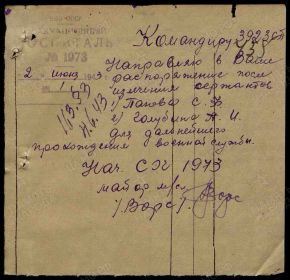 НКО-СССР
ГОСПИТАЛЬ
№ 1973
2 июня
Командиру 392 зсп
Направляю в Ваше
распоряжение после
излечения сержантов
1) Панова С. Ф.
2) Голубина А. И.
для дальнейшего
прохождения военной службы.
Нач. СЭГ 1973
майор м/с
/. Ворс /.